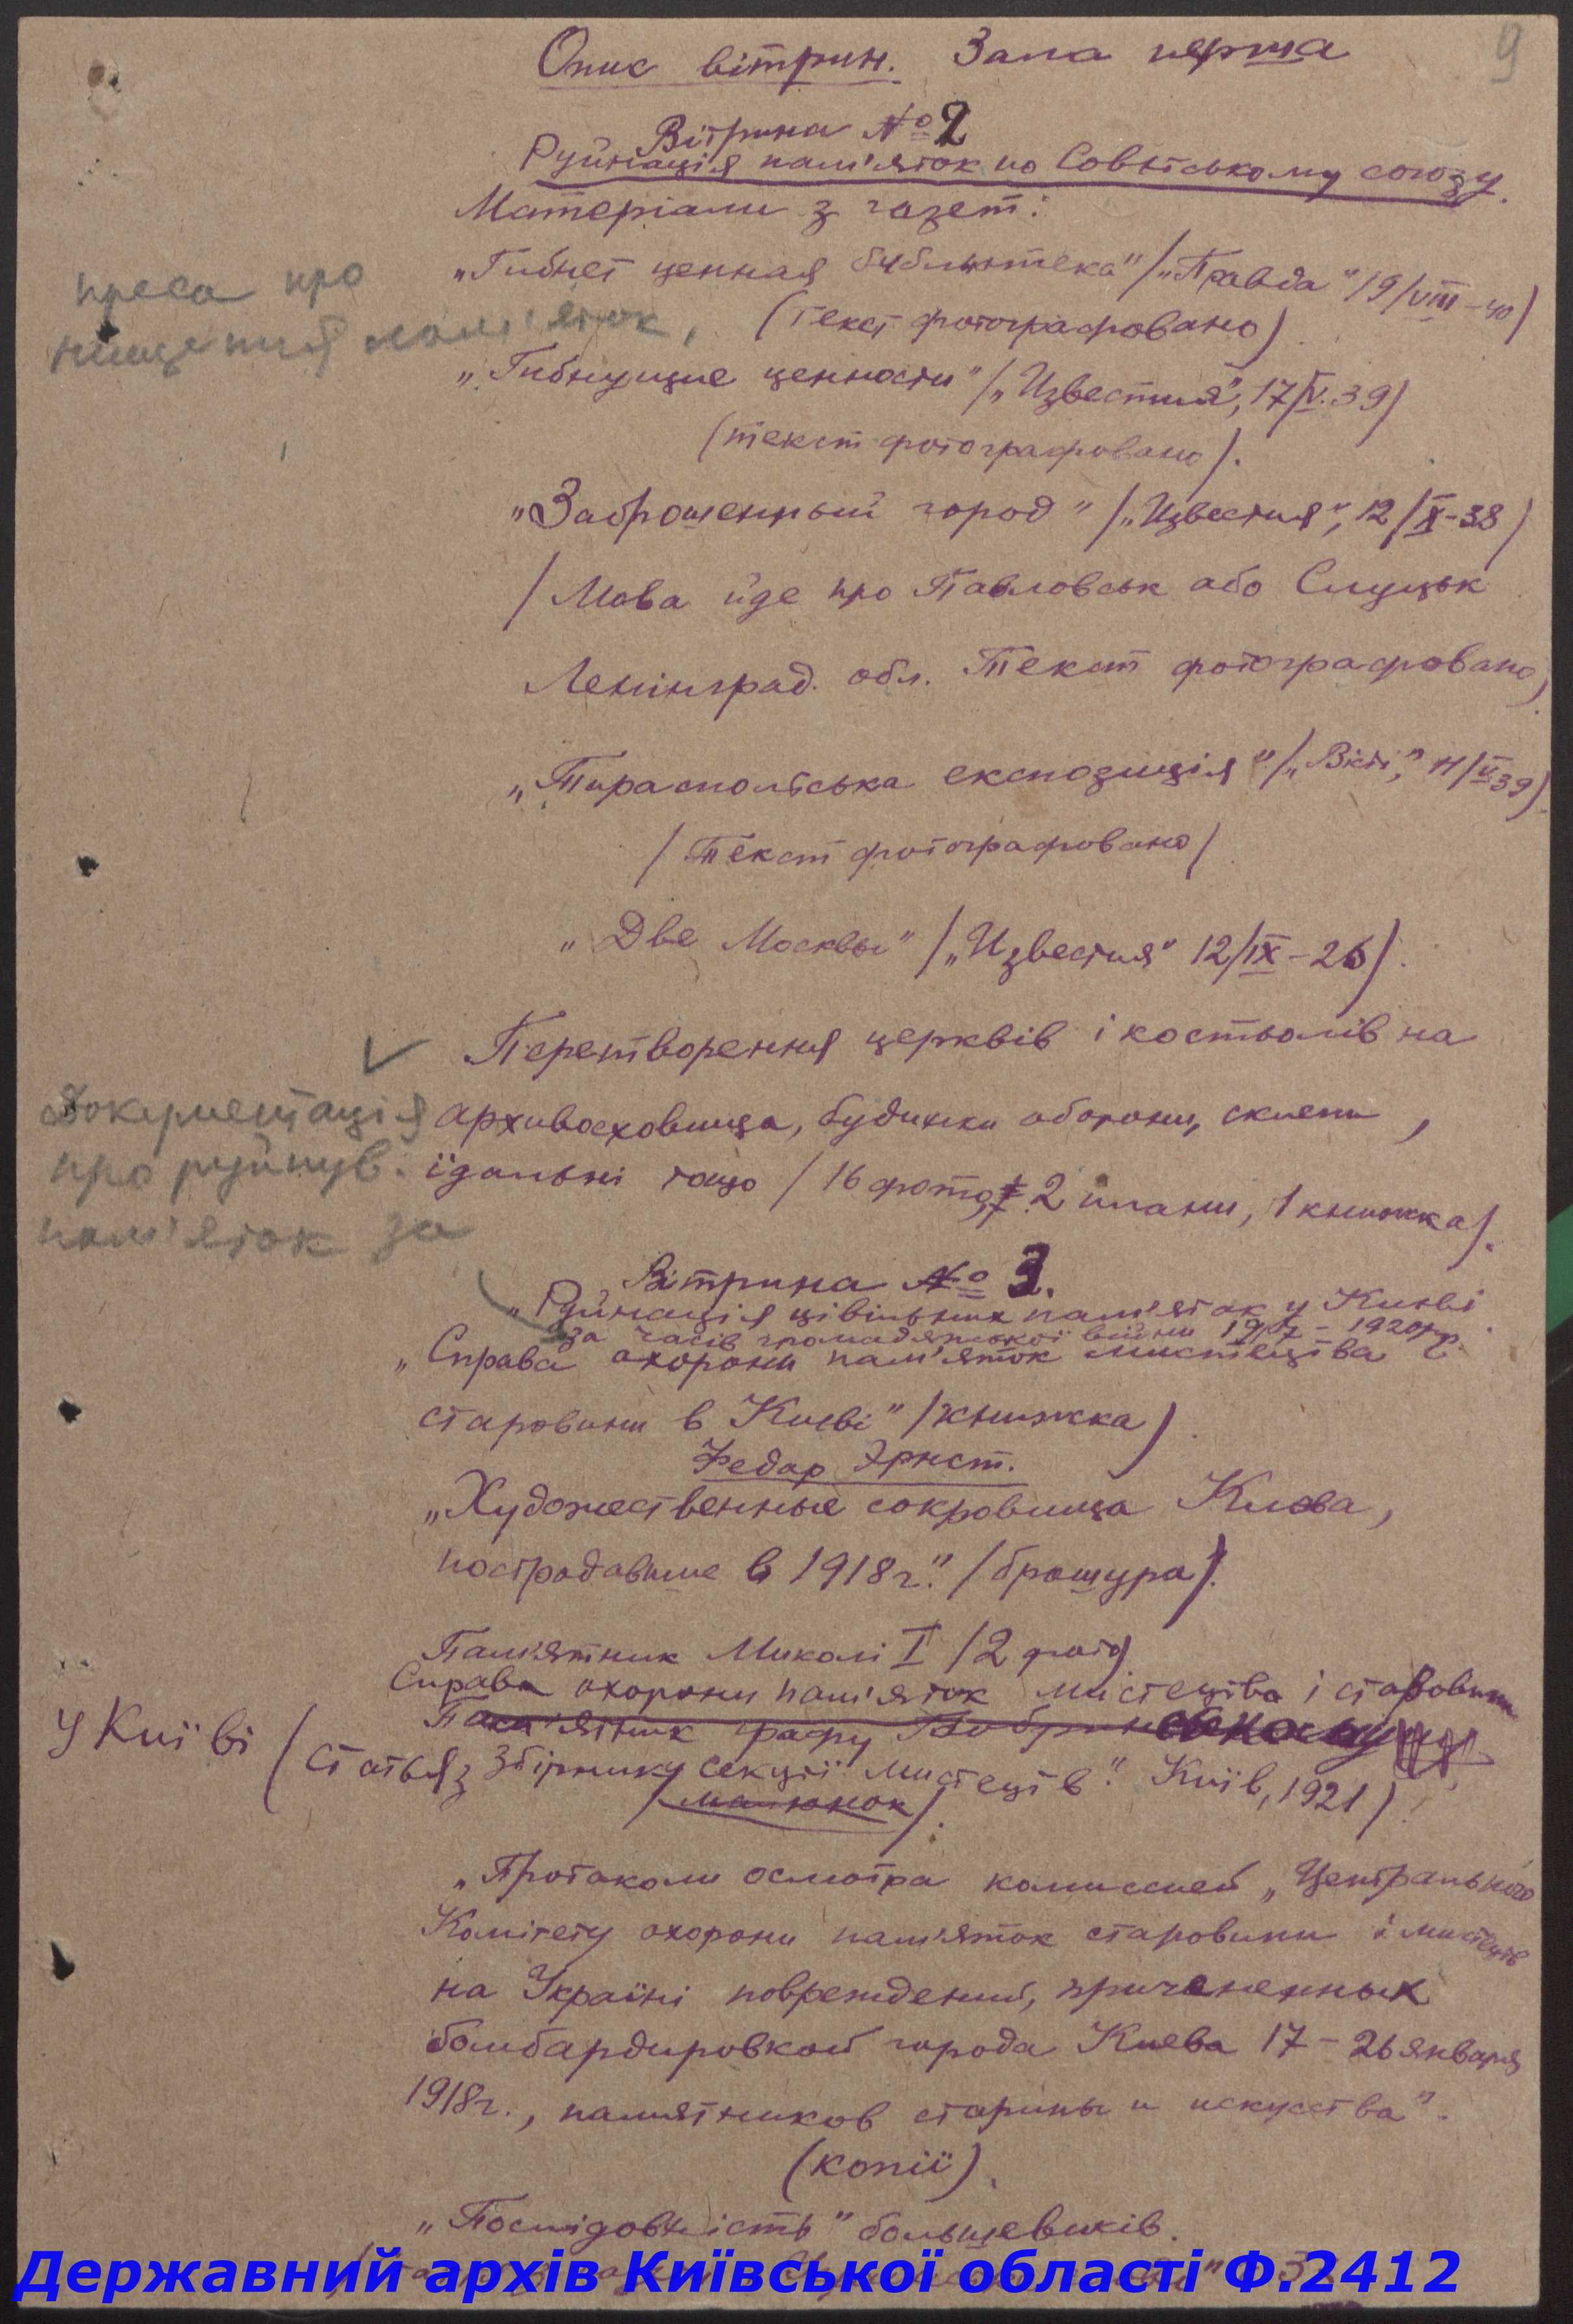 9
Опис вітрин. Зала перша
Вітрина № 2
Руйнація пам'яток по Совітському союзу.
Матеріали з газет:
„Гибнет ценная библиотека" /„Правда" 19/VIII-40)
преса про
нищення пам'яток,
(текст фотографовано)
„Гибнущие ценности" /„Известия", 17/IV.39)
(текст фотографовано).
„Заброшенный город" /„Известия", 12/X-38)
/Мова йде про Павловськ або Слуцьк
Ленінград. обл. Текст фотографовано)
„Тираспольська експозиція" /„Вісті", 11/V 39)
/Текст фотографовано/
„Две Москвы" /„Известия" 12/IX-26/.
Перетворення церквів і костьолів на
архивосховища, будинки оборони, склепи,
їдальні тощо /16 фото, 2 плани, 1 книжка/.
документація
про руйнув.
пам'яток за
Вітрина № 3.
„Руйнація цівільних пам'яток у Києві
за часів громадянської війни 1917-1920 рр.
„Справа охорони пам'яток мистецтва
старовини в Києві" /книжка)
Федор Эрнст.
„Художественные сокровища Киева,
пострадавшие в 1918 г." /брошура/.
Пам'ятник Миколі I /2 фото)
Справа охорони пам'яток мистецтва і старовини
Пам'ятник графу Бобринському
у Киіві (статья з збірнику секції мистецтв". Київ, 1921)
/малюнок/.
„Протоколи осмотра комиссией „Центрального
Комітету охорони пам'яток старовини і мистецтв
на Україні повреждений, причененных
бомбардировкой города Киева 17-26 января
1918 г., памятников старины и искусства".
(копії).
„Послідовність" большевиків.
Державний архів Київської області Ф.2412